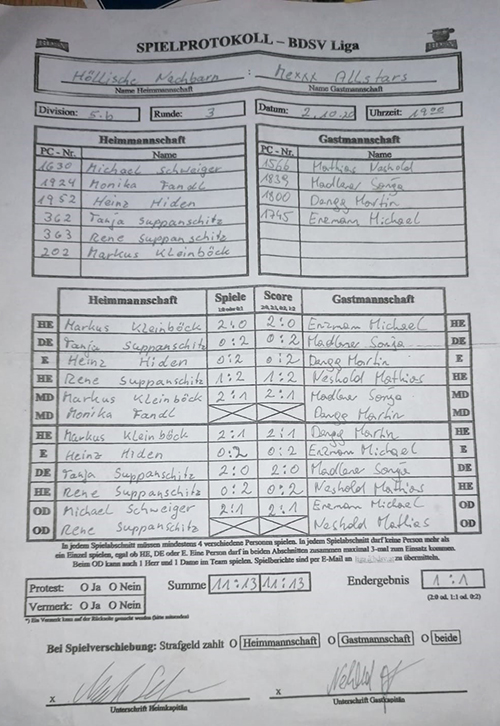 SPIELPROTOKOLL – BDSV Liga
Höllische Nachbarn : Mexxx Allstars
Name Heimmannschaft Name Gastmannschaft
Division: 5.b Runde: 3 Datum: 2.10.20 Uhrzeit: 19⁰⁰
Heimmannschaft Gastmannschaft
PC - Nr. Name PC - Nr. Name
1630 Michael Schweiger 1566 Mathias Neshold
1924 Monika Fandl 1839 Madlener Sonja
1952 Heinz Hiden 1800 Dangg Martin
362 Tanja Suppanschitz 1745 Enzmann Michael
363 Rene Suppanschitz
202 Markus Kleinböck
Heimmannschaft Spiele Score Gastmannschaft
2:0 oder 0:2 2:0, 2:1, 0:2, 1:2
HE Markus Kleinböck 2:0 2:0 Enzmann Michael HE
DE Tanja Suppanschitz 0:2 0:2 Madlener Sonja DE
E Heinz Hiden 0:2 0:2 Dangg Martin E
HE Rene Suppanschitz 1:2 1:2 Neshold Mathias HE
MD Markus Kleinböck 2:1 2:1 Madlener Sonja MD
MD Monika Fandl Dangg Martin MD
HE Markus Kleinböck 2:1 2:1 Dangg Martin HE
E Heinz Hiden 0:2 0:2 Enzmann Michael E
DE Tanja Suppanschitz 2:0 2:0 Madlener Sonja DE
HE Rene Suppanschitz 0:2 0:2 Neshold Mathias HE
OD Michael Schweiger 2:1 2:1 Enzmann Michael OD
OD Rene Suppanschitz Neshold Mathias OD
In jedem Spielabschnitt müssen mindestens 4 verschiedene Personen spielen. In jedem Spielabschnitt darf keine Person mehr als
ein Einzel spielen, egal ob HE, DE oder E. Eine Person darf in beiden Abschnitten zusammen maximal 3-mal zum Einsatz kommen.
Beim OD kann auch 1 Herr und 1 Dame im Team spielen. Spielberichte sind per E-Mail an zu übermitteln.
Protest: O Ja O Nein Summe 11:13 11:13 Endergebnis 1:1
Vermerk: O Ja O Nein (2:0 od. 1:1 od. 0:2)
*) Ein Vermerk kann auf der Rückseite gemacht werden (bitte ankreuzen)
Bei Spielverschiebung: Strafgeld zahlt O Heimmannschaft O Gastmannschaft O beide
x x
Unterschrift Heimkapitän Unterschrift Gastkapitän